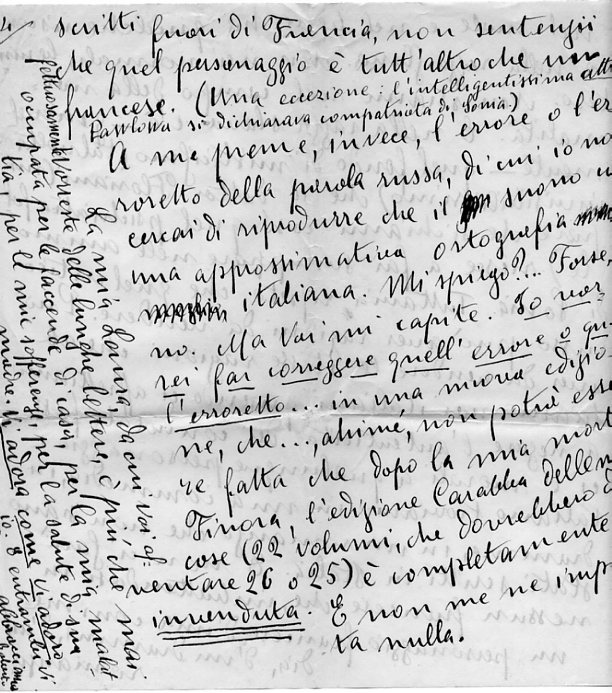 4/
scritti fuori di Francia, non sentenzii
che quel personaggio è tutt'altro che un
francese. (Una eccezione: l'intelligentissima
Pawlowa si dichiarava compatriota di Sonia)
A me preme, invece, l'errore o l'er
roretto della parola russa, di cui io no
cercai di riprodurre che il suono
una approssimativa ortografia
italiana. Mi spiego?... Forse,
no. Ma Voi mi capite. Io vor
rei far correggere quell'errore o qu
l'erroretto... in una nuova edizio
ne, che..., ahimé, non potrà esse
re fatta che dopo la mia mort
Finora, l'edizione Carabba delle m
cose (22 volumi, che dovrebbero
ventare 26 o 25) è completamente
invenduta. E non me ne imp
ta nulla.
La mia Lonia, da cui Voi as-
pettereste delle lunghe lettere, è più che mai
occupata per le faccende di casa, per la mia malat
tia, per le mie sofferenze, per la salute di sua
madre. Vi adora come vi adoro
io. E entrambi
abbracciamo